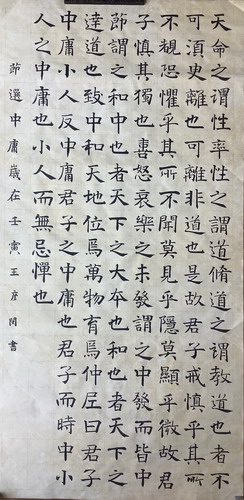 天命之謂性率性之謂道脩道之謂教道也者不
可須臾離也可離非道也是故君子戒慎乎其所
不覩恐懼乎其所不聞莫見乎隱莫顯乎微故君
子慎其獨也喜怒哀樂之未發謂之中發而皆中
節謂之和中也者天下之大夲也和也者天下之
達道也致中和天地位焉萬物育焉仲尼曰君子
中庸小人反中庸君子之中庸也君子而時中小
人之中庸也小人而無忌憚也
節選中庸歲在壬寅王彦書